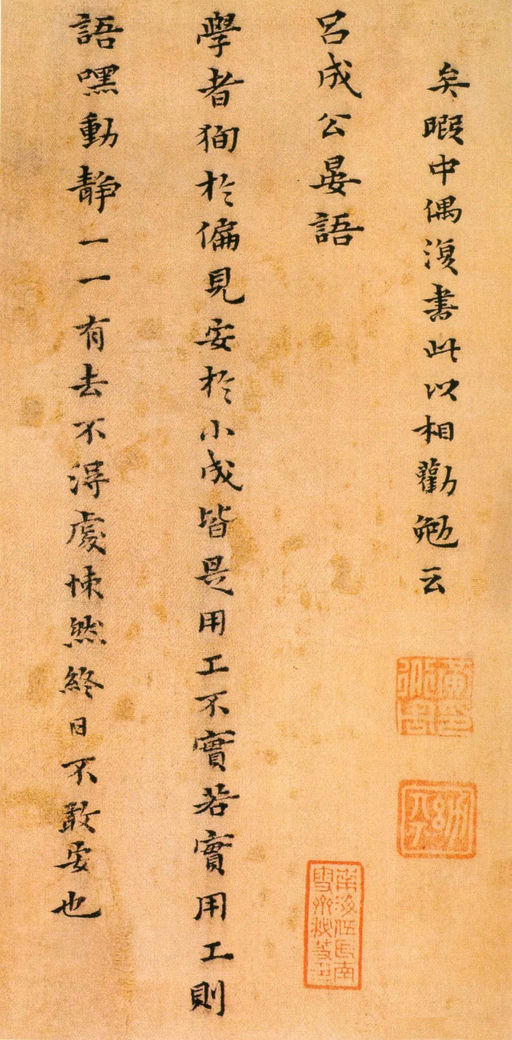 矣暇中偶復書此以相勸勉云
呂成公晏語
學者狥於偏見安於小成皆是用工不實若實用工則
語嘿動靜一一有去不得處悚然終日不敢安也
南海伍氏南
雪齋秘笈印